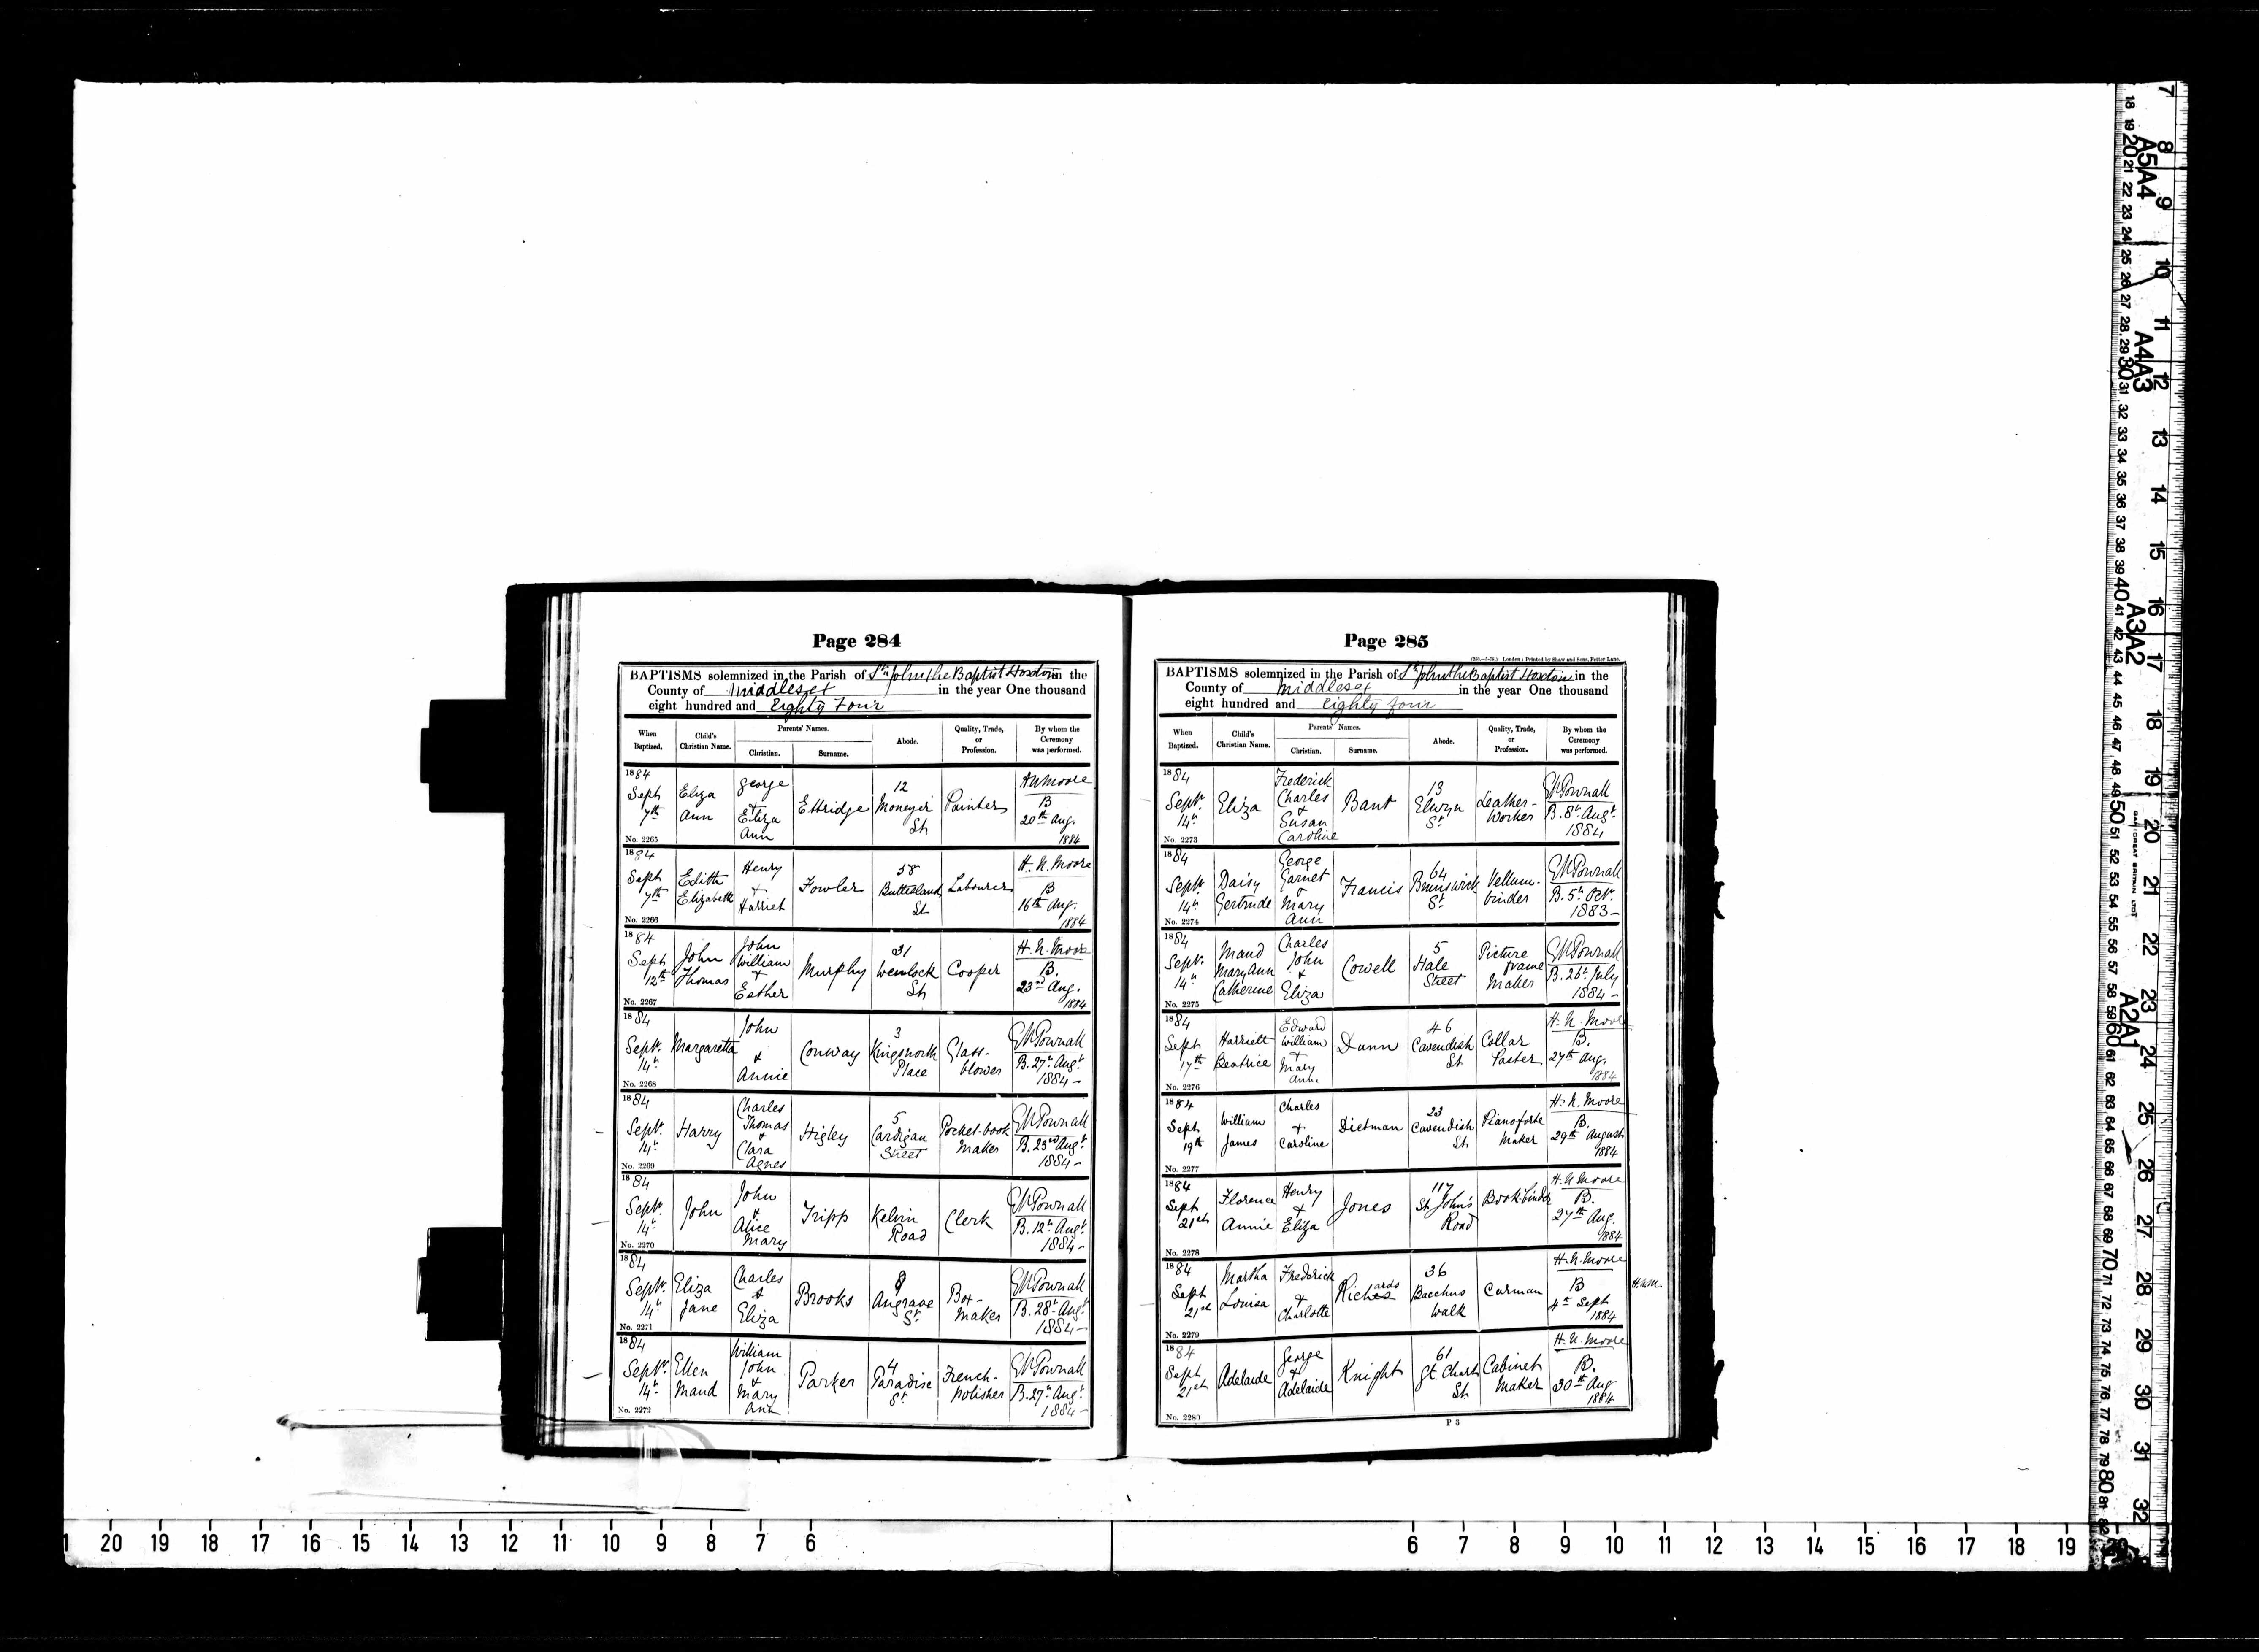 Page 284
BAPTISMS solemnized in the Parish of St John the Baptist Hoxton in the
County of Middlesex in the year One thousand
eight hundred and Eighty Four
When Baptized. Child's Christian Name. Parents' Names. Christian. Surname. Abode. Quality, Trade, or Profession. By whom the Ceremony was performed.
1884 Sept 7th Eliza Ann George & Eliza Ann Ettridge 12 Moneyer St Painter H N Moore B 20th Aug. 1884
No. 2265
1884 Sept 7th Edith Elizabeth Henry & Harriet Fowler 58 Buttesland St Labourer H. N. Moore B 16th Aug. 1884
No. 2266
1884 Sept 12th John Thomas John William & Esther Murphy 31 Wenlock St Cooper H. N. Moore B. 23rd Aug. 1884
No. 2267
1884 Septr. 14th Margaretta John & Annie Conway 3 Kingsnorth Place Glass-blower G N Pownall B. 27th Augt 1884-
No. 2268
1884 Septr. 14th Harry Charles Thomas & Clara Agnes Higley 5 Cardigan Street Pocket-book Maker G N Pownall B. 23rd Augt 1884-
No. 2269
1884 Septr. 14th John John & Alice Mary Tripp Kelvin Road Clerk G N Pownall B. 12th Augt 1884-
No. 2270
1884 Septr. 14th Eliza Jane Charles & Eliza Brooks 9 Angrave St. Box-Maker G N Pownall B. 28th Augt 1884-
No. 2271
1884 Septr. 14th Ellen Maud William John & Mary Ann Parker 4 Paradise St. French-polisher G N Pownall B. 27th Augt 1884-
No. 2272
Page 285
BAPTISMS solemnized in the Parish of St John the Baptist Hoxton in the
County of Middlesex in the year One thousand
eight hundred and Eighty four
When Baptized. Child's Christian Name. Parents' Names. Christian. Surname. Abode. Quality, Trade, or Profession. By whom the Ceremony was performed.
1884 Septr. 14th Eliza Frederick Charles & Susan Caroline Bant 13 Elwyn St Leather-Worker G N Pownall B. 8th Augt 1884
No. 2273
1884 Septr. 14th Daisy Gertrude George Garnet & Mary Ann Francis 64 Brunswick St. Vellum-binder G N Pownall B. 5th Octr. 1883-
No. 2274
1884 Septr. 14th Maud Mary Ann Catherine Charles John & Eliza Cowell 5 Hale Street Picture frame Maker G N Pownall B. 26th July 1884-
No. 2275
1884 Sept 17th Harriett Beatrice Edward William & Mary Anne Dunn 46 Cavendish St Collar Paster H. N. Moore B. 27th Aug. 1884
No. 2276
1884 Sept 19th William James Charles & Caroline Dietman 23 Cavendish St Pianoforte Maker H. N. Moore B. 29th August 1884
No. 2277
1884 Sept 21st Florence Annie Henry & Eliza Jones 117 St John's Road Bookbinder H. N Moore B. 27th Aug. 1884
No. 2278
1884 Sept 21st Martha Louisa Frederick & Charlotte Richards 36 Bacchus Walk Carman H. N. Moore B 4th Sept 1884 H.N.M.
No. 2279
1884 Sept 21st Adelaide George & Adelaide Knight 61 Gt. Chart St Cabinet Maker H. N. Moore B. 30th Aug 1884
No. 2280
P 3